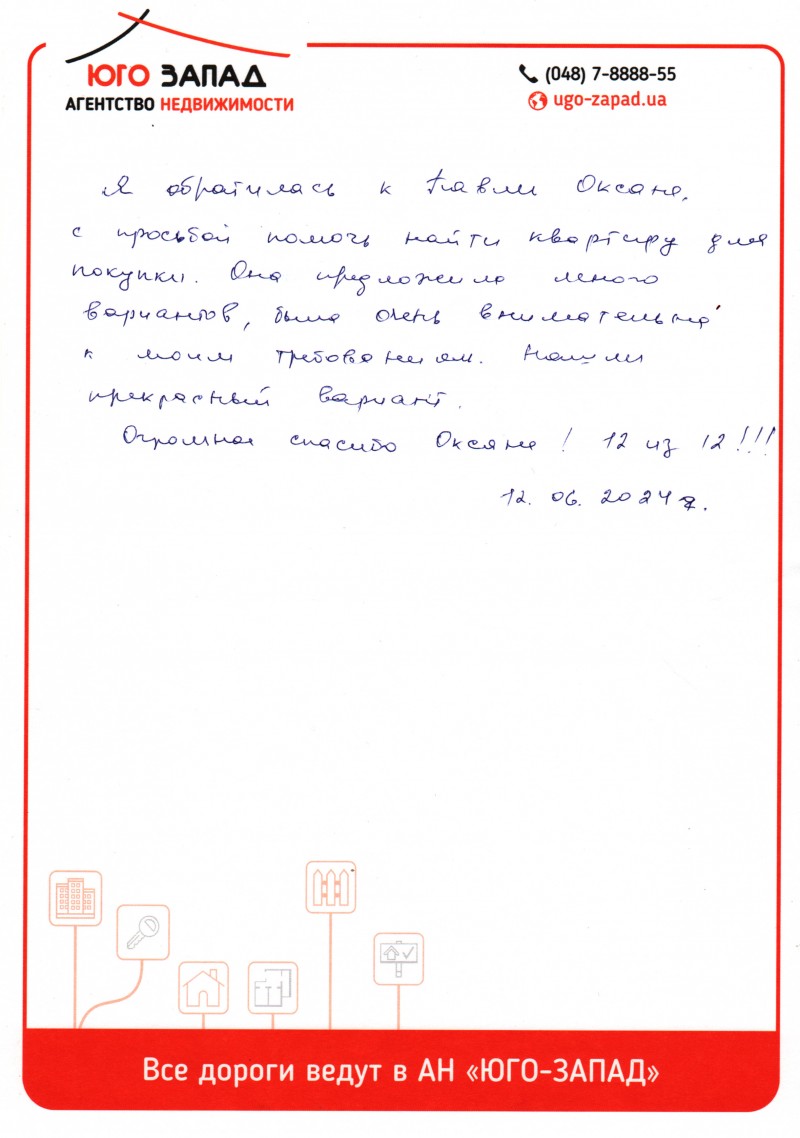 ЮГО ЗАПАД
АГЕНТСТВО НЕДВИЖИМОСТИ
(048) 7-8888-55
ugo-zapad.ua
Я обратилась к Павли Оксане,
с просьбой помочь найти квартиру для
покупки. Она предложила много
вариантов, была очень внимательна
к моим требованиям. Нашли
прекрасный вариант.
Огромное спасибо Оксане! 12 из 12!!!
12.06.2024 г.
Все дороги ведут в АН «ЮГО-ЗАПАД»